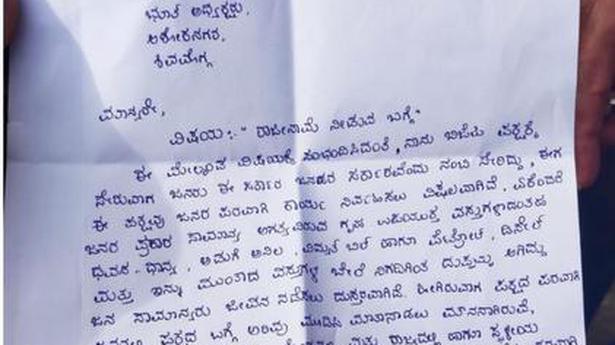 ಬೂತ್ ಅಧ್ಯಕ್ಷರು,
ಅಶೋಕನಗರ,
ಶಿವಮೊಗ್ಗ
ಮಾನ್ಯರೇ,
ವಿಷಯ:- "ರಾಜೀನಾಮೆ ನೀಡುವ ಬಗ್ಗೆ"
ಈ ಮೇಲ್ಕಂಡ ವಿಷಯಕ್ಕೆ ಸಂಭಂದಿಸಿದಂತೆ, ನಾನು ಬಿಜೆಪಿ ಪಕ್ಷಕ್ಕೆ
ಸೇರುವಾಗ ಜನರು ಈ ಸರ್ಕಾರ ಜನಪರ ಸರ್ಕಾರವೆಂದು ನಂಬಿ ಸೇರಿದ್ದು, ಈಗ
ಈ ಪಕ್ಷವು ಜನರ ಪರವಾಗಿ ಕಾರ್ಯ ನಿರ್ವಹಿಸಲು ವಿಫಲವಾಗಿದೆ, ಏಕೆಂದರೆ
ಜನರ ಪ್ರಕಾರ ಸಾಮಾನ್ಯ ಅಗತ್ಯವಿರುವ ಗೃಹ ಬಳಕೆಯ ವಸ್ತುಗಳಾದಂತಹ
ಧವಸ-ಧಾನ್ಯ, ಅಡುಗೆ ಅನಿಲ, ವಿದ್ಯುತ್ ಬಿಲ್ ಹಾಗೂ ಪೆಟ್ರೋಲ್, ಡಿಸೇಲ್
ಮತ್ತು ಇನ್ನು ಮುಂತಾದ ವಸ್ತುಗಳ ಬೆಲೆ ನಿಗದಿಗಿಂತ ದುಪ್ಪಟ್ಟು ಆಗಿದ್ದು
ಜನ ಸಾಮಾನ್ಯರು ಜೀವನ ನಡೆಸಲು ದುಸ್ತರವಾಗಿದೆ. ಹೀಗಿರುವಾಗ ಪಕ್ಷದ ಪರವಾಗಿ
ಪಕ್ಷದ ಬಗ್ಗೆ ಅರಿವು ಮೂಡಿಸಿ ಮಾತನಾಡಲು ಮೌನನಾಗಿರುವೆ,
ಮತ್ತು ರಾಜ್ಯದಲ್ಲಿ ಹಾಗೂ ಸ್ಥಳೀಯ